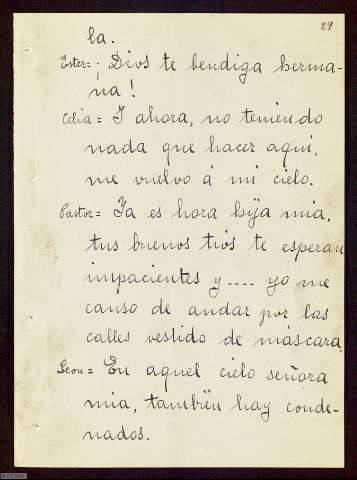 29
la.
Ester=¡Dios te bendiga herma-
na!
Celia= I ahora, no teniendo
nada que hacer aquí,
me vuelvo á mi cielo.
Pastor= Ya es hora hija mia,
tus buenos tios te esperan
impacientes y.... yo me
canso de andar por las
calles vestido de máscara.
Leon= En aquel cielo señora
mia, tambiën hay conde-
nados.